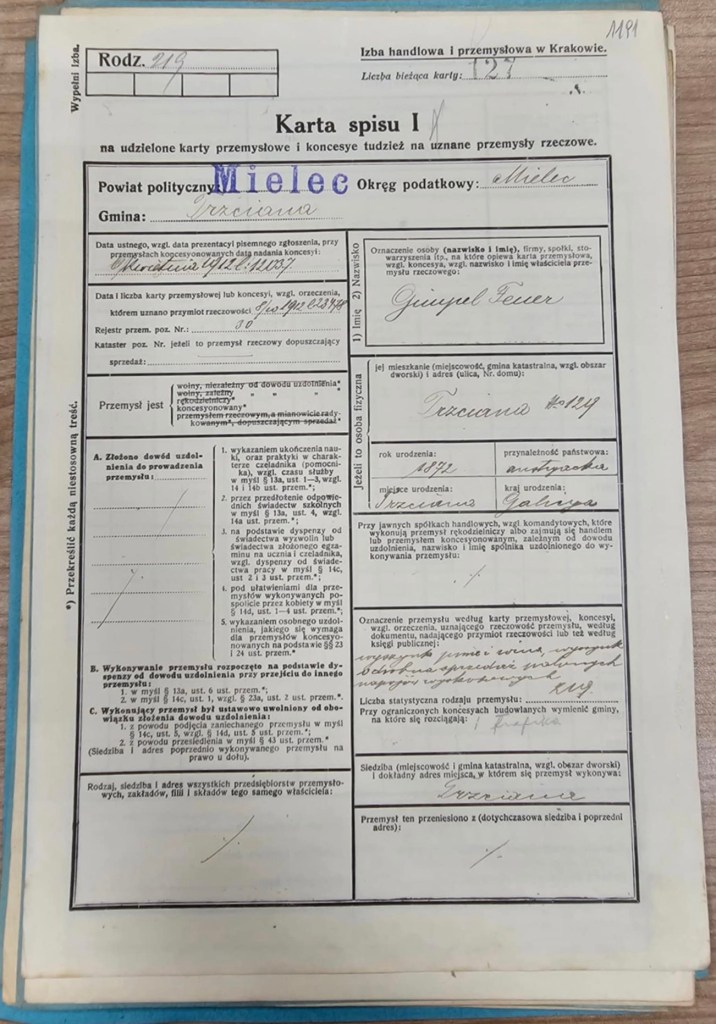 1191
Wypełni Izba.
Rodz. 219
Izba handlowa i przemysłowa w Krakowie.
Liczba bieżąca karty: 127
Karta spisu I
na udzielone karty przemysłowe i koncesye tudzież na uznane przemysły rzeczowe.
Powiat polityczny: Mielec Okręg podatkowy: Mielec
Gmina: Trzciana
*) Przekreślić każdą niestosowną treść.
Data ustnego, wzgl. data prezentacyi pisemnego zgłoszenia, przy
przemysłach koncesyonowanych data nadania koncesyi:
kwietnia 1912 l: 12037
Data i liczba karty przemysłowej lub koncesyi, wzgl. orzeczenia,
którem uznano przymiot rzeczowości 1912
Rejestr przem. poz. Nr.: 30
Kataster poz. Nr. jeżeli to przemysł rzeczowy dopuszczający
sprzedaż:
Przemysł jest
wolny, niezależny od dowodu uzdolnienia*
wolny, zależny " " " *
rękodzielniczy*
koncesyonowany*
przemysłem rzeczowym, a mianowicie rady-
kowanym*, dopuszczającym sprzedaż*
A. Złożono dowód uzdol-
nienia do prowadzenia
przemysłu:
1. wykazaniem ukończenia nau-
ki, oraz praktyki w charak-
terze czeladnika (pomocni-
ka), wzgl. czasu służby
w myśl § 13a, ust. 1—3, wzgl.
14 i 14b ust. przem.*;
2. przez przedłożenie odpowie-
dnich świadectw szkolnych
w myśl § 13a, ust. 4, wzgl.
14a ust. przem.*;
3. na podstawie dyspenzy od
świadectwa wyzwolin lub
świadectwa złożonego egza-
minu na ucznia i czeladnika,
wzgl. dyspenzy od świade-
ctwa pracy w myśl § 14c,
ust 2 i 3 ust. przem.*;
4. pod ułatwieniami dla prze-
mysłów wykonywanych po-
spolicie przez kobiety w myśl
§ 14d, ust. 1—4 ust. przem.*;
5. wykazaniem osobnego uzdol-
nienia, jakiego się wymaga
dla przemysłów koncesyo-
nowanych na podstawie §§ 23
i 24 ust. przem.*
B. Wykonywanie przemysłu rozpoczęto na podstawie dys-
penzy od dowodu uzdolnienia przy przejściu do innego
przemysłu:
1. w myśl § 13a, ust. 6 ust. przem.*;
2. w myśl § 14c, ust. 1, wzgl. § 23a, ust. 2 ust. przem.*.
C. Wykonujący przemysł był ustawowo uwolniony od obo-
wiązku złożenia dowodu uzdolnienia:
1. z powodu podjęcia zaniechanego przemysłu w myśl
§ 14c, ust. 5, wzgl. § 14d, ust. 5 ust. przem.*;
2. z powodu przesiedlenia w myśl § 43 ust. przem.*
(Siedziba i adres poprzednio wykonywanego przemysłu na
prawo u dołu).
Rodzaj, siedziba i adres wszystkich przedsiębiorstw przemysło-
wych, zakładów, filii i składów tego samego właściciela:
·/.
1) Imię 2) Nazwisko
Oznaczenie osoby (nazwisko i imię), firmy, spółki, sto-
warzyszenia itp., na które opiewa karta przemysłowa,
wzgl. koncesya, wzgl. nazwisko i imię właściciela prze-
mysłu rzeczowego:
Gimpel Feuer
Jeżeli to osoba fizyczna
jej mieszkanie (miejscowość, gmina katastralna, wzgl. obszar
dworski) i adres (ulica, Nr. domu):
Trzciana No 129
rok urodzenia: przynależność państwowa:
1872 austryacka
miejsce urodzenia: kraj urodzenia:
Trzciana Galicya
Przy jawnych spółkach handlowych, wzgl komandytowych, które
wykonują przemysł rękodzielniczy albo zajmują się handlem
lub przemysłem koncesyonowanym, zależnym od dowodu
uzdolnienia, nazwisko i imię spólnika uzdolnionego do wy-
konywania przemysłu:
·/.
Oznaczenie przemysłu według karty przemysłowej, koncesyi,
wzgl. orzeczenia, uznającego rzeczowość przemysłu, według
dokumentu, nadającego przymiot rzeczowości lub też według
księgi publicznej:
wyszynk piwa i wina, wyszynk
i drobna sprzedaż palonych
napojów wyskokowych
Liczba statystyczna rodzaju przemysłu: 219
Przy ograniczonych koncesyach budowlanych wymienić gminy,
na które się rozciągają: i trafika
Siedziba (miejscowość i gmina katastralna, wzgl. obszar dworski)
i dokładny adres miejsca, w którem się przemysł wykonywa:
Trzciana
Przemysł ten przeniesiono z (dotychczasowa siedziba i poprzedni
adres):
·/.